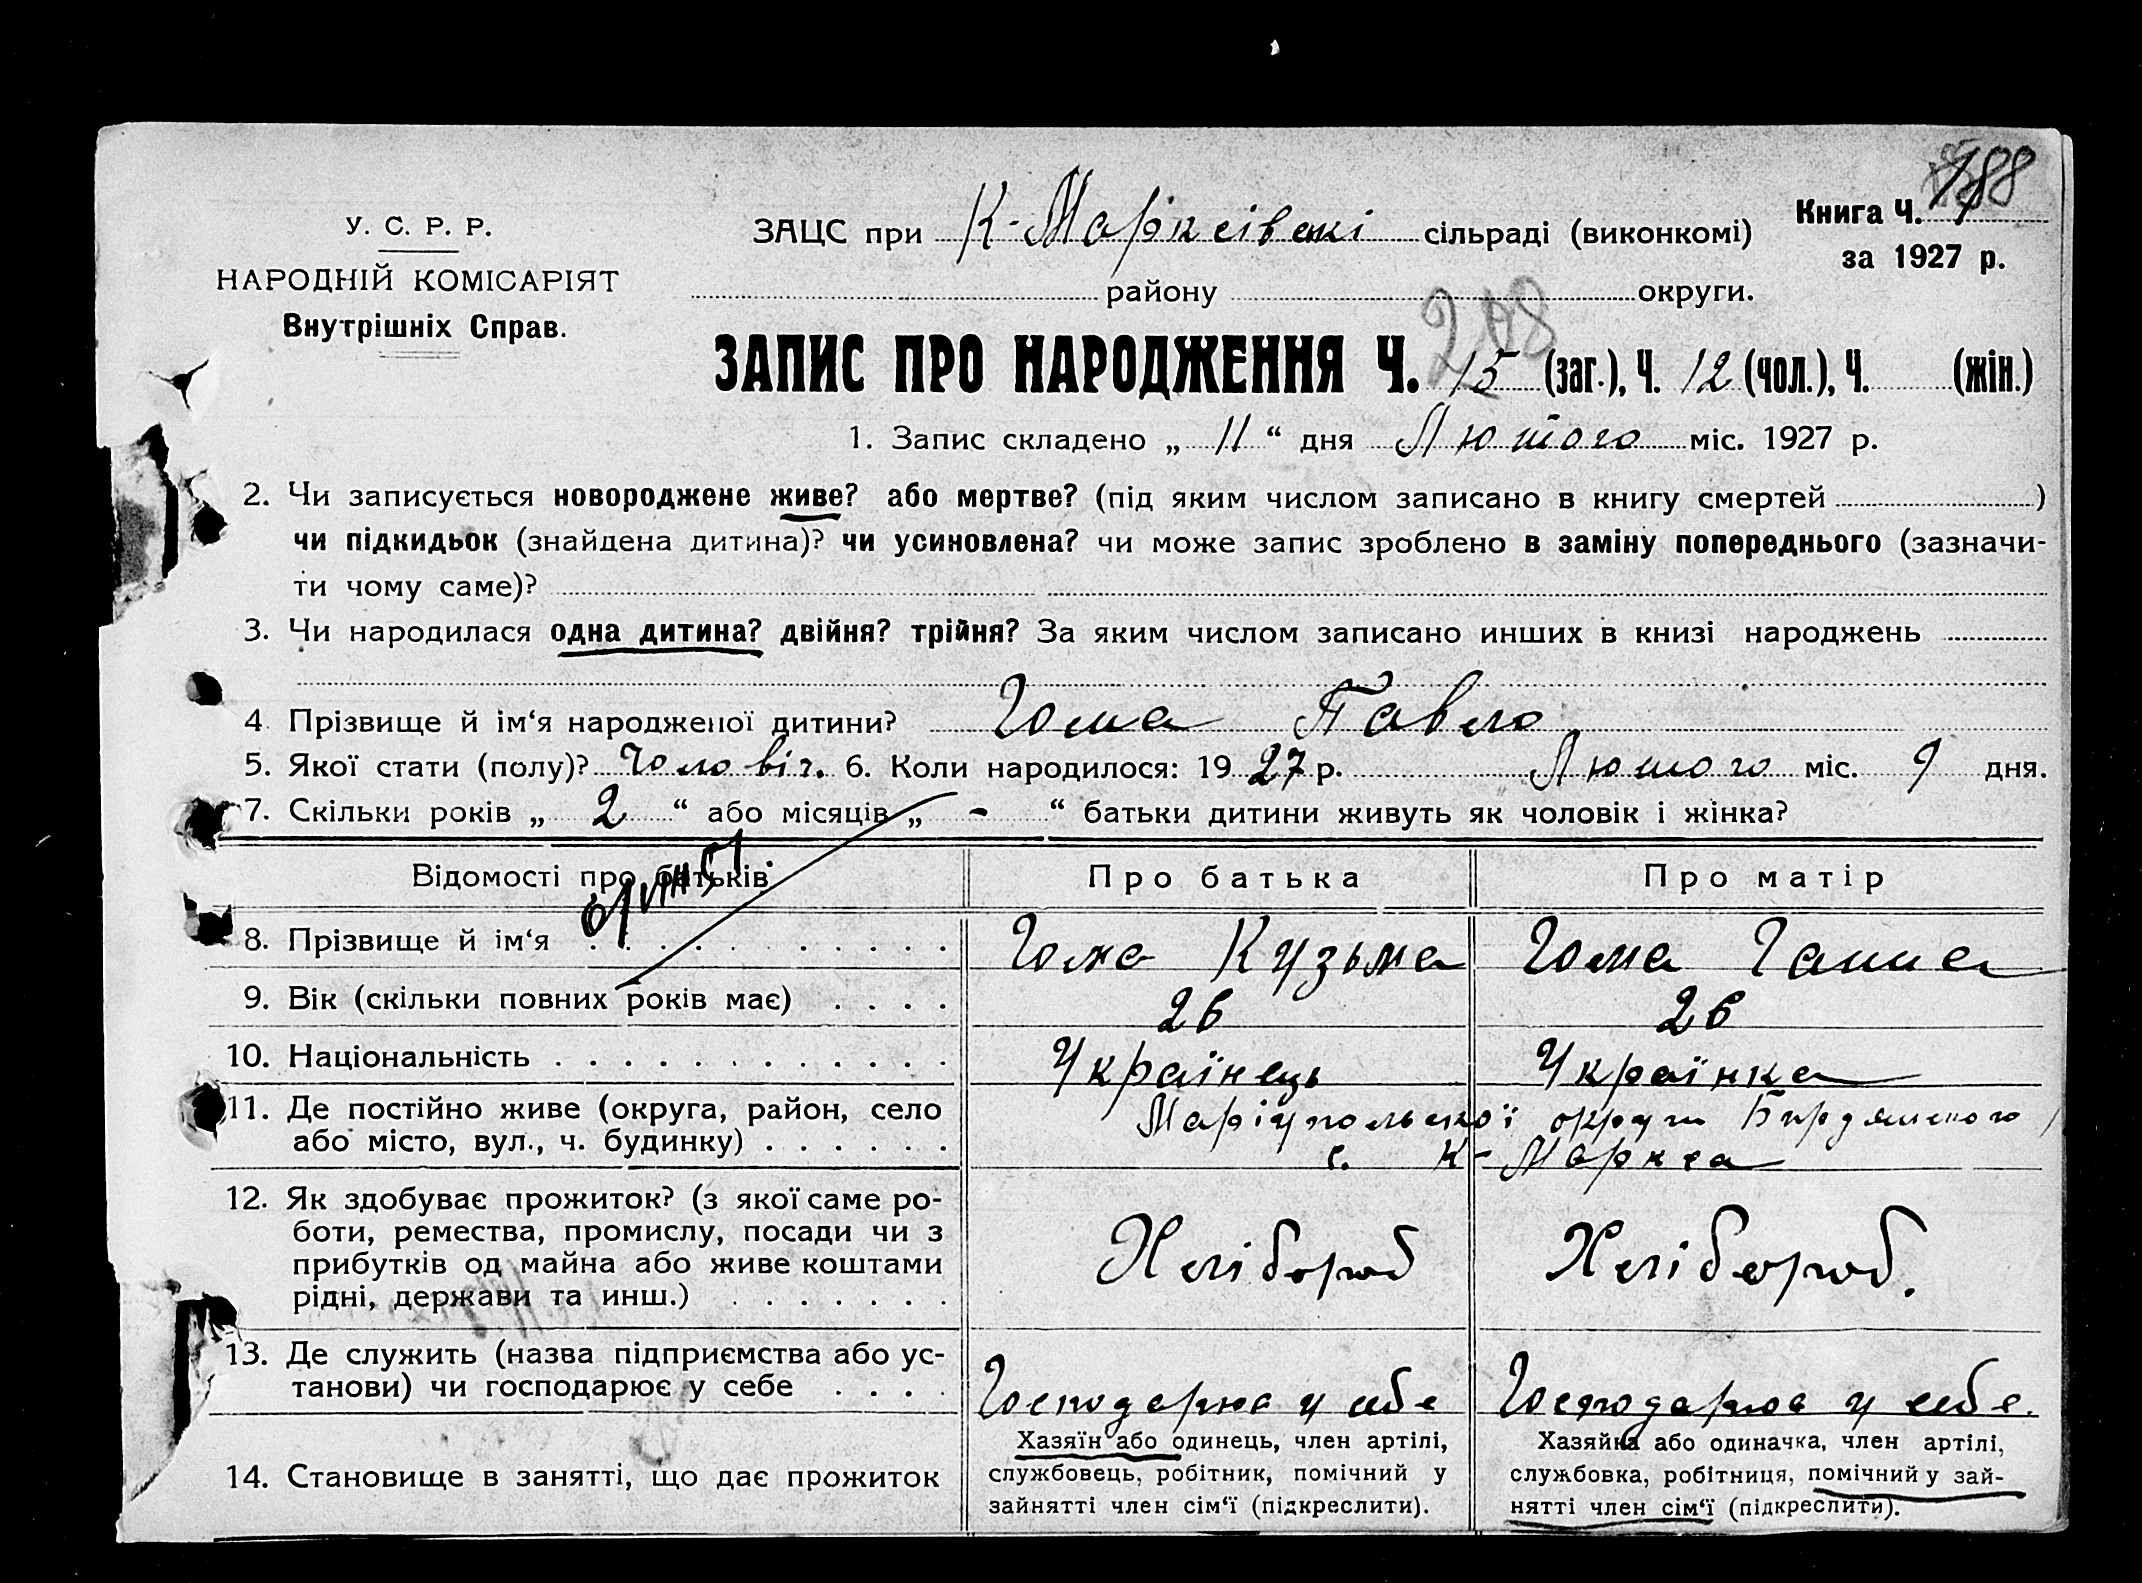 188
У. С. Р. Р.
НАРОДНІЙ КОМІСАРІЯТ
Внутрішніх Справ.
ЗАЦС при К-Марксівскі сільраді (виконкомі)
Книга Ч.
за 1927 р.
району округи.
208
ЗАПИС ПРО НАРОДЖЕННЯ Ч. 15 (заг.), Ч. 12 (чол.), Ч. (жін.)
1. Запис складено „ 11 “ дня Лютого міс. 1927 р.
2. Чи записується новороджене живе? або мертве? (під яким числом записано в книгу смертей )
чи підкидьок (знайдена дитина)? чи усиновлена? чи може запис зроблено в заміну попереднього (зазначи-
ти чому саме)?
3. Чи народилася одна дитина? двійня? трійня? За яким числом записано инших в книзі народжень
4 Прізвище й ім‘я народженої дитини? Гома Павло
5. Якої стати (полу)? Чоловіч. 6. Коли народилося: 19 27 р. Лютого міс. 9 дня.
7. Скільки років „ 2 “ або місяців „ - “ батьки дитини живуть як чоловік і жінка?
Відомості про батьків: Про батька Про матір
8. Прізвище й ім‘я . . . . . . . . . Гома Кузьма Гома Ганна
9. Вік (скільки повних років має) . . . . 26 26
10. Національність . . . . . . . . . . . Українець Українка
11. Де постійно живе (округа, район, село Маріупольської округи Бердянського
або місто, вул., ч. будинку) . . . . . . с. К-Маркса
12. Як здобуває прожиток? (з якої саме ро-
боти, ремества, промислу, посади чи з
прибутків од майна або живе коштами Хлібороб Хлібороб.
рідні, держави та инш.) . . . . . . .
13. Де служить (назва підприємства або ус-
танови) чи господарює у себе . . . . Господарює у себе Господарює у себе.
14. Становище в занятті, що дає прожиток
Хазяїн або одинець, член артілі,
службовець, робітник, помічний у
зайнятті член сім‘ї (підкреслити).
Хазяйка або одиначка, член артілі,
службовка, робітниця, помічний у зай-
нятті член сім‘ї (підкреслити).